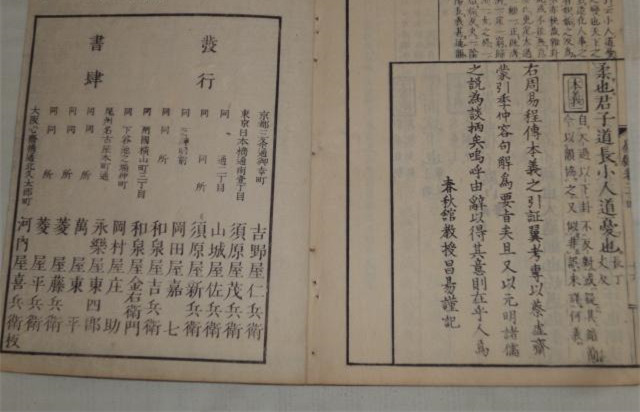 柔也君子道長小人道憂也 長丁丈反
本義 自大過以下卦不反對或疑其錯簡
今以韻協之又似非誤未詳何義
右周易程傳本義之引証翼考專以蔡虚齋
蒙引李仲容句解為要旨矣且又以元明諸儒
之説為談柄矣嗚呼由辭以得其意則在乎人焉
春秋舘教授昌易謹記
發行
書肆
京都三条通御幸町 吉野屋仁兵衛
東京日本橋通壹丁目 須原屋茂兵衛
同 通二丁目 山城屋佐兵衛
同 同所 須原屋新兵衛
同 芝神明前 岡田屋嘉七
同 同所 和泉屋吉兵衛
同 両國横山町三丁目 和泉屋金右衛門
同 下谷池之端仲町 岡村屋庄助
尾州名古屋本町通 永樂屋東四郎
同 同所 萬屋東平
同 同所 菱屋藤兵衛
同 同所 菱屋平兵衛
大阪心斎橋通北久太郎町 河内屋喜兵衛板